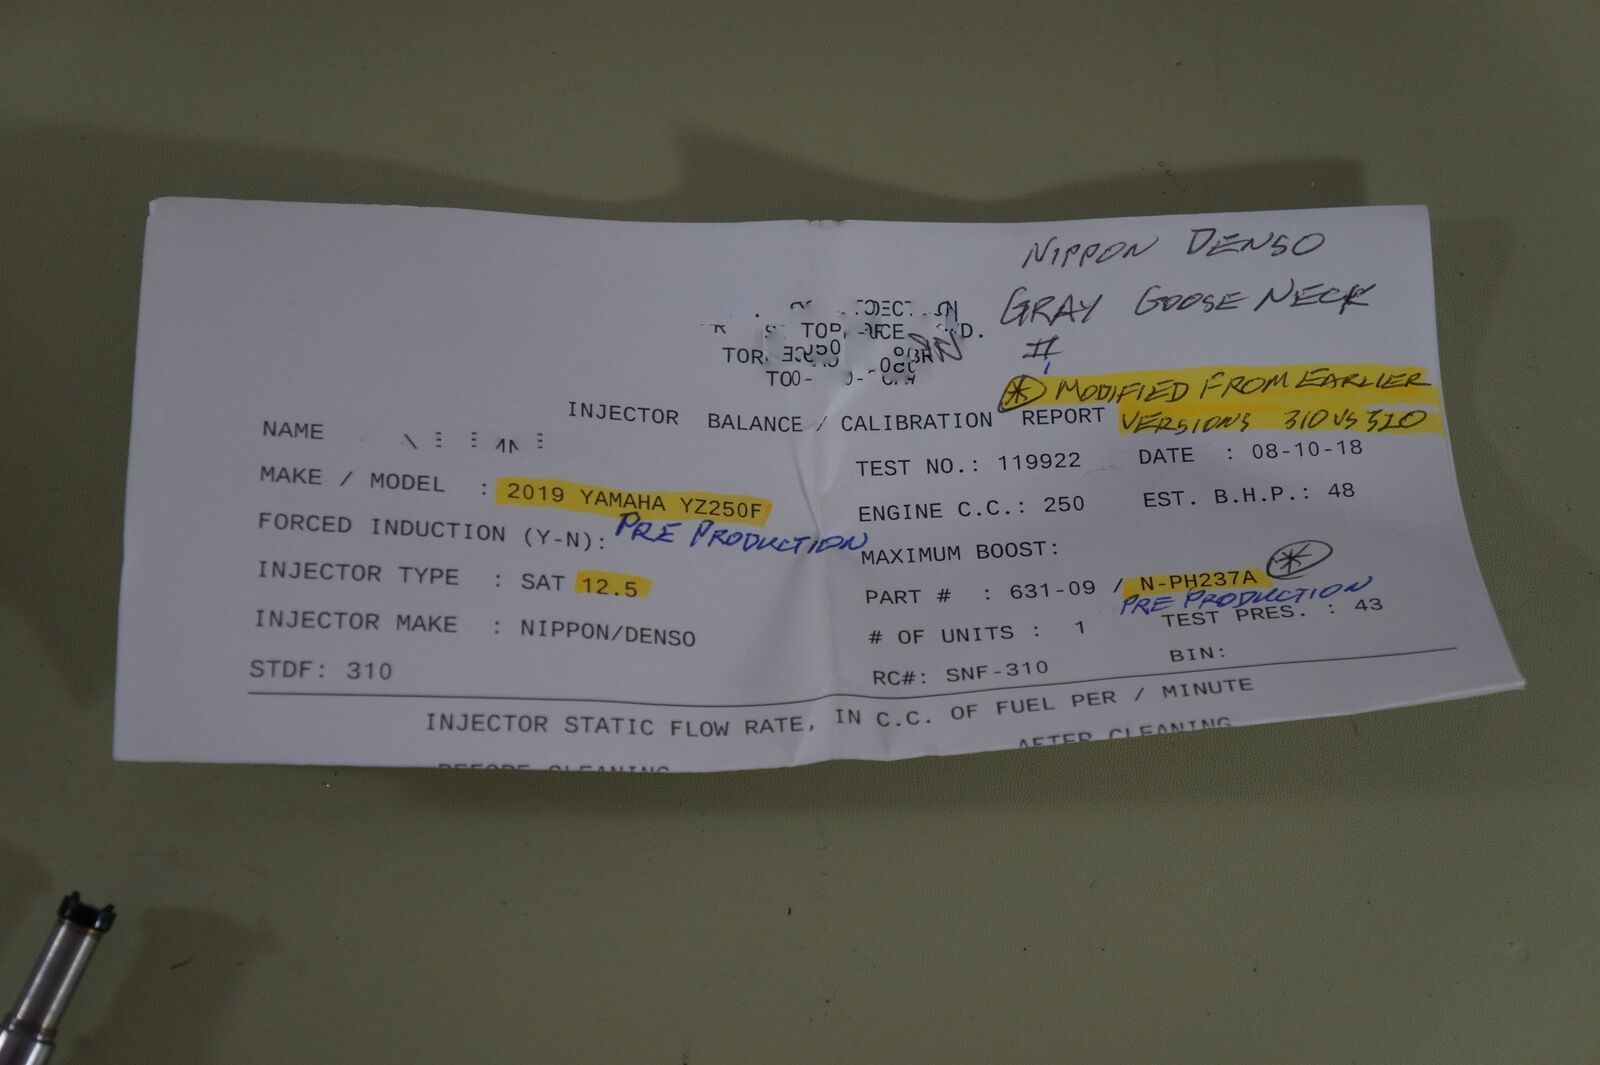 NIPPON DENSO
GRAY GOOSE NECK
#
* MODIFIED FROM EARLIER
VERSIONS 310 VS 320
INJECTOR BALANCE / CALIBRATION REPORT
NAME
TEST NO.: 119922 DATE : 08-10-18
MAKE / MODEL : 2019 YAMAHA YZ250F
ENGINE C.C.: 250 EST. B.H.P.: 48
FORCED INDUCTION (Y-N): PRE PRODUCTION
MAXIMUM BOOST:
INJECTOR TYPE : SAT 12.5
PART # : 631-09 / N-PH237A *
PRE PRODUCTION
INJECTOR MAKE : NIPPON/DENSO
# OF UNITS : 1 TEST PRES. : 43
STDF: 310
RC#: SNF-310 BIN:
INJECTOR STATIC FLOW RATE, IN C.C. OF FUEL PER / MINUTE
BEFORE CLEANING AFTER CLEANING